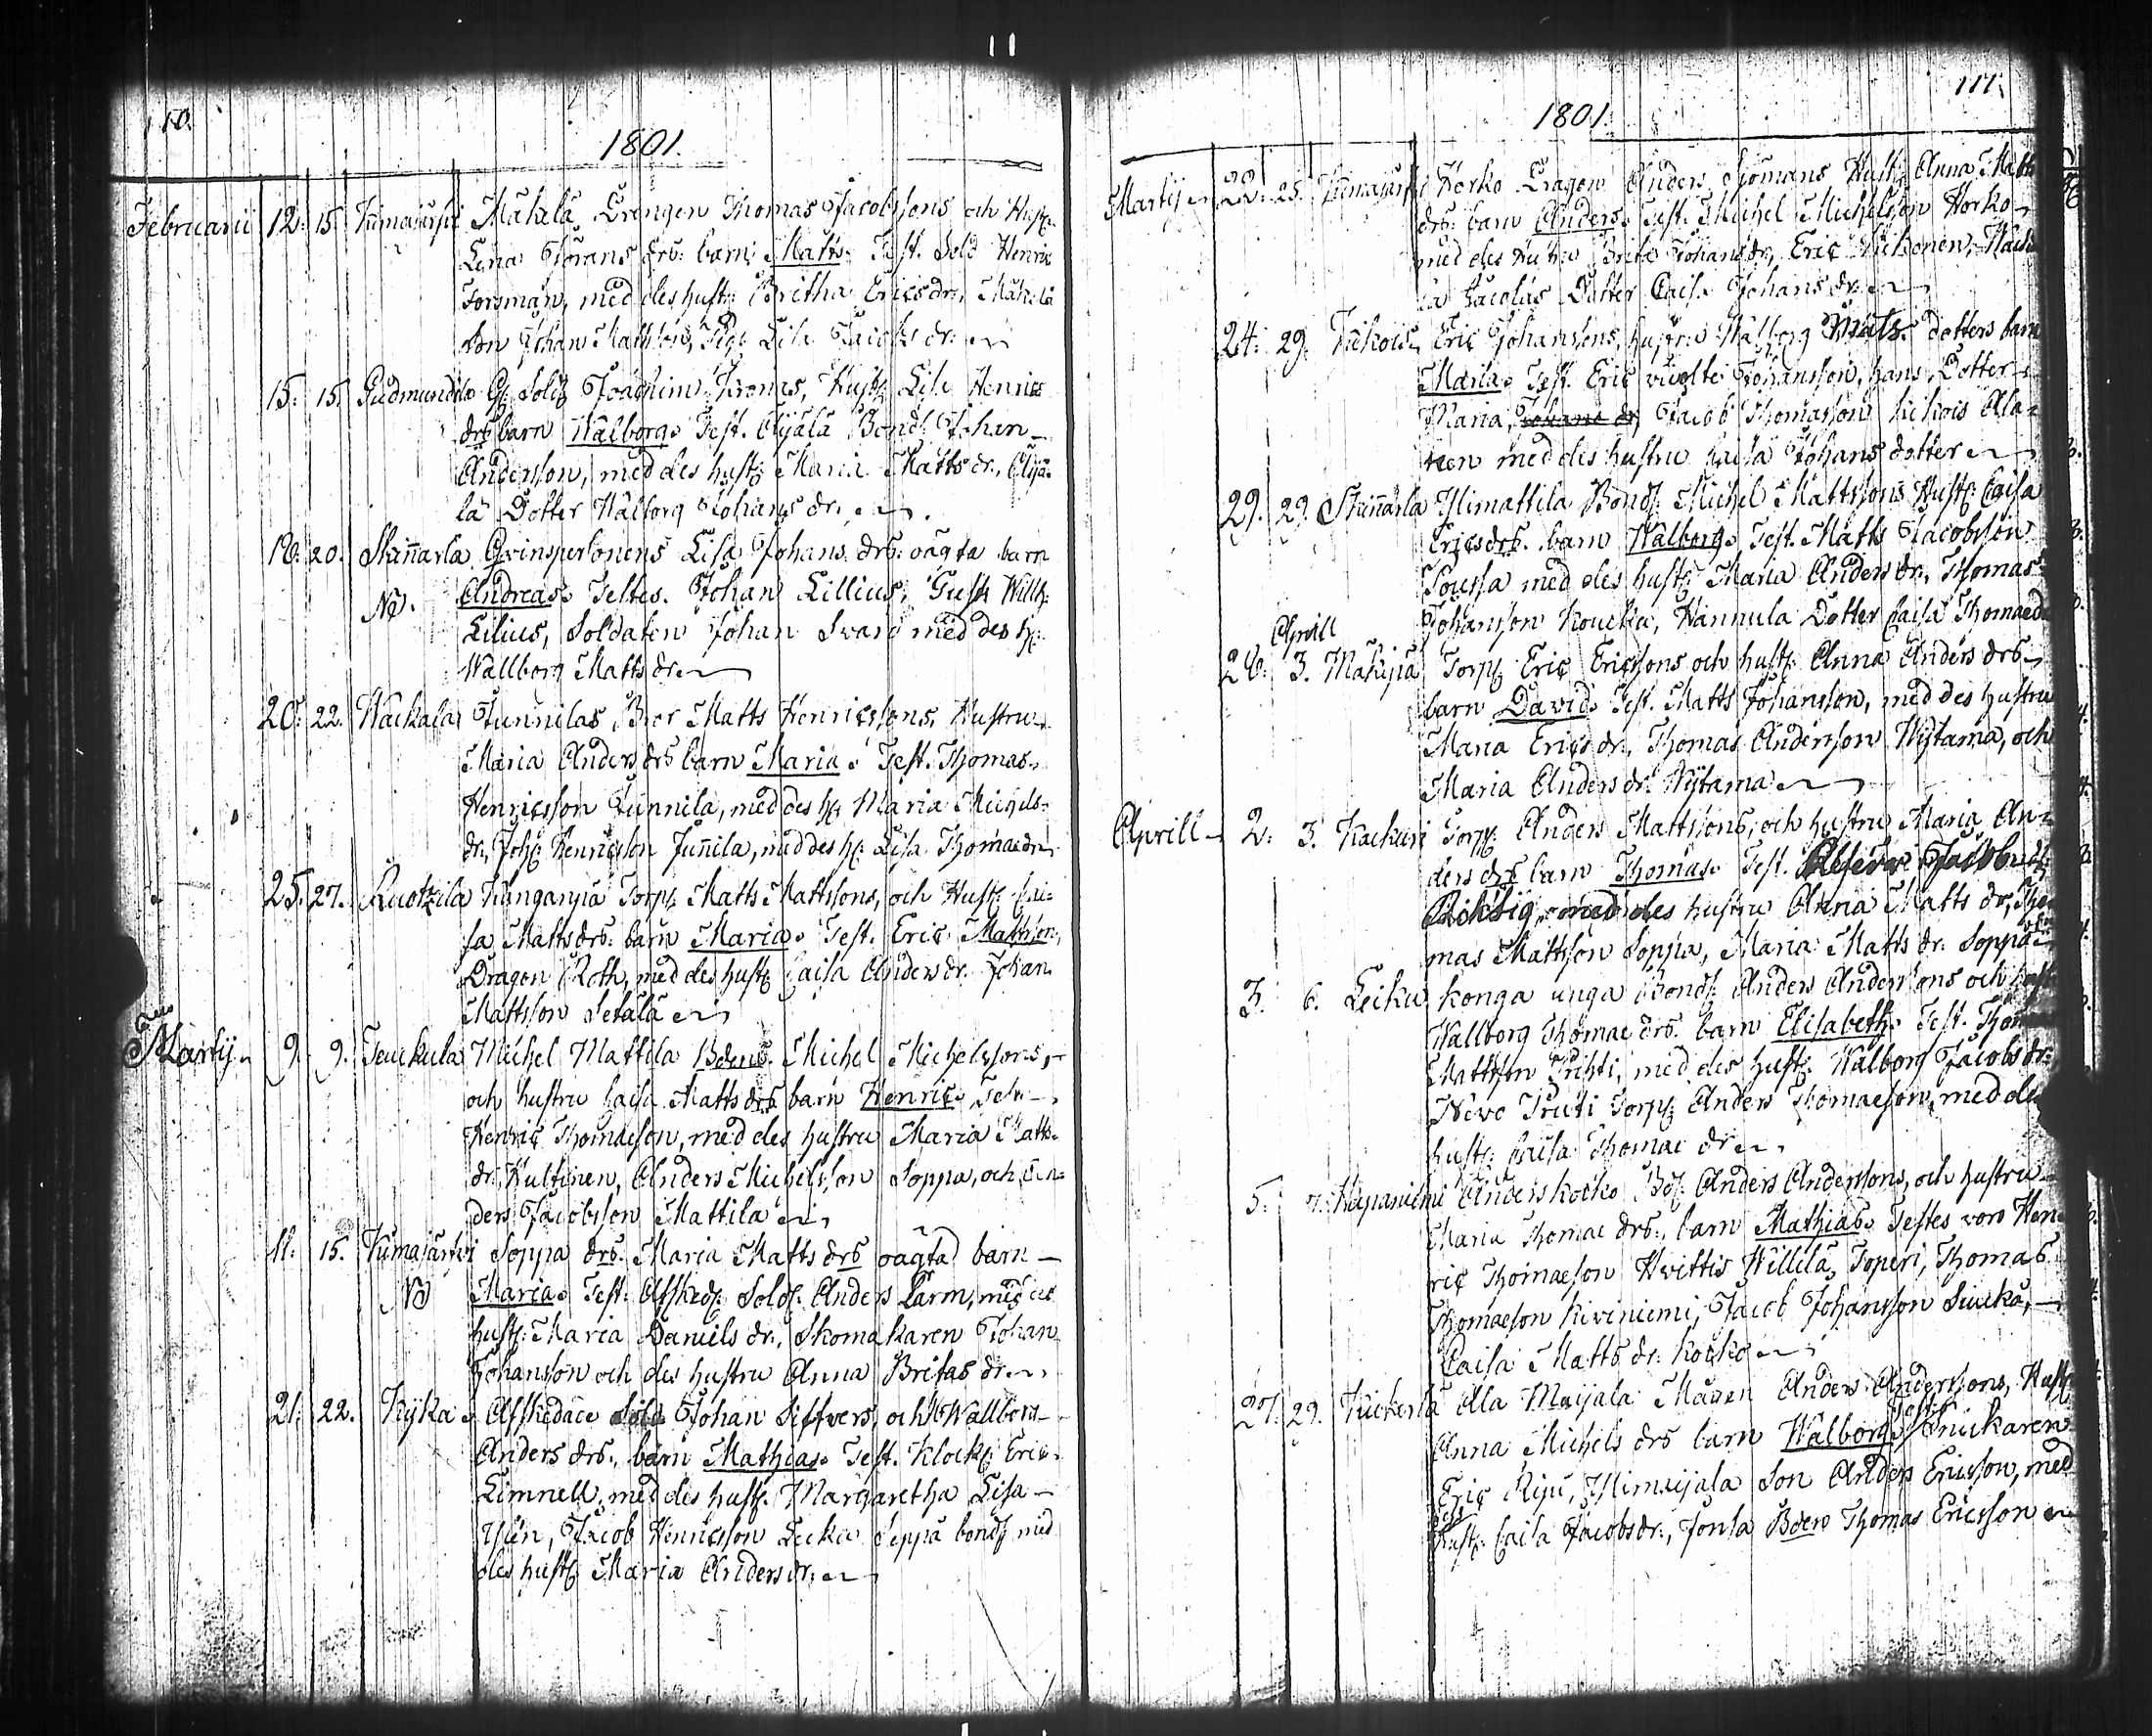 11
110.
1801.
Februarii 12. 15. Kumajärfvi Mäkelä Drengen Thomas Jacobssons och Hust:
Lena Jörans drs: barn Matts. Test. Sold Henric
Forsman, med des hust: Britha Ericsdr:, Mäkelä
Son Johan Mattsson, Pig: Lisa Jacobs dr:
15. 15. Gudmundila Gl: Sold: Joachim Kromas, Hust: Lisa Henrics
drs barn Walborg. Test. Äijälä Bond: Johan
Andersson, med des hust: Maria Matts dr:, Äijä-
lä Dotter Walborg Johans dr:
18. 20. Skannarla Qvinspersonens Lisa Johans drs: oägta barn
NB. Andreas. Testes. Johan Lillius, Gust: Wilh:
Lilius, Soldaten Johan Svard med des h:
Wallborg Matts dr:
20. 22. Wackala Junnilas Bror Matts Henricssons, Hustru
Maria Anders drs barn Maria. Test. Thomas
Henricsson Junnila, med des h: Maria Michels-
dr:, Joh: Henricsson Junnila, med des h: Lisa Thomaedr:
25. 27. Ruotzila Kunganpä Torp: Matts Mattssons, och Hust: Cai-
sa Mattsdrs: barn Maria. Test. Eric Mattsson,
Dragon Roth, med des hust: Caisa Anders dr: Johan
Mattsson Setälä
Martij 9. 9. Teuckula Michel Mattila Bdens. Michel Michelssons,
och hustru Caisa Matts drs barn Henric. Test.
Henric Thomaeson, med des hustru Maria Matts-
dr: Hultinen, Anders Michelsson Soppa, och An-
ders Jacobsson Mattila
11. 15. Kumajärfvi Soppa drs. Maria Matts drs oägta barn
NB Maria. Test. Afsked: Sold: Anders Larm, med des
hust: Maria Daniels dr:, Skomakaren Johan
Johansson och des hustru Anna Britas dr:
21. 22. Kyka Afskedade Sold Johan Siffvers, och Wallborg
Anders drs:, barn Mathias. Test. Klock: Eric
Limnell, med des hust: Margaretha Lisa
, Jacob Henricsson Leeku Seppä bond: med
des hust: Maria Anders dr:
111.
1801.
Martij 22. 25. Kumajärfvi Horko Dragon Anders Sjömans Hust: Anna Matts
drs: barn Anders. Test. Michel Michelsson Horko
med des hustru Brita Johans dr:, Eric Kickonen,
la Jacolas Dotter Caisa Johans dr:
24. 29. Kickois Eric Johanssons, hustru Walborg Mats dotters barn
Maria. Test. Eric Johansson, hans Dotter
Maria, Johans dr, Jacob Thomasson Kickois Ala-
nen med des hustru Caisa Johans dotter
29. 29. Skannarla Ylimattila Bond: Michel Mattssons Hust: Caisa
Ericsdrs. barn Walborg. Test. Matts Jacobsson
Soussa med des hust: Maria Anders dr:, Thomas
Johansson Koucka, Hannula Dotter Caisa Thomaedr
Aprill
28. 3. Mäkipä Torp: Eric Ericssons och hust: Anna Anders drs
barn David. Test. Matts Johansson, med des hustru
Maria Erics dr:, Thomas Andersson Nytama, och
Maria Anders dr: Nytama
Aprill 2. 3. Kackuri Torp: Anders Mattssons, och hustru Maria An-
ders drs barn Thomas. Test. Reserve Jacob
Richtig, med des hustru Anna Matts dr, Tho-
mas Mattsson Soppa, Maria Matts dr: Soppa
3. 6. Leiku Konga unga Bond: Anders Anderssons och hust
Wallborg Thomae drs. barn Elisabeth. Test. Thomas
Mattsson Prihti, med des hust: Walborg Jacobs dr:
Torp: Anders Thomaeson, med des
hust: Caisa Thomae dr
5. 7. Kepaniemi Anders Kocko Bd: Anders Anderssons, och hustru
Maria Thomae drs:, barn Mathias. Testes voro Hen-
ric Thomaeson Hvittis Willilä, Toperi, Thomas
Thomaeson Kiviniemi, Jacob Johansson Siucka,
Caisa Matts dr: Kocko
27. 29. Kuckerla Alla Maijala Mågen Anders Anderssons, Hust
Anna Michels drs barn Walborg. Test. Snickaren
Eric , Ylimaijala Son Anders Ericsson, med
des
Hust: Caisa Jacobsdr:, Jonsa Bden Thomas Ericsson